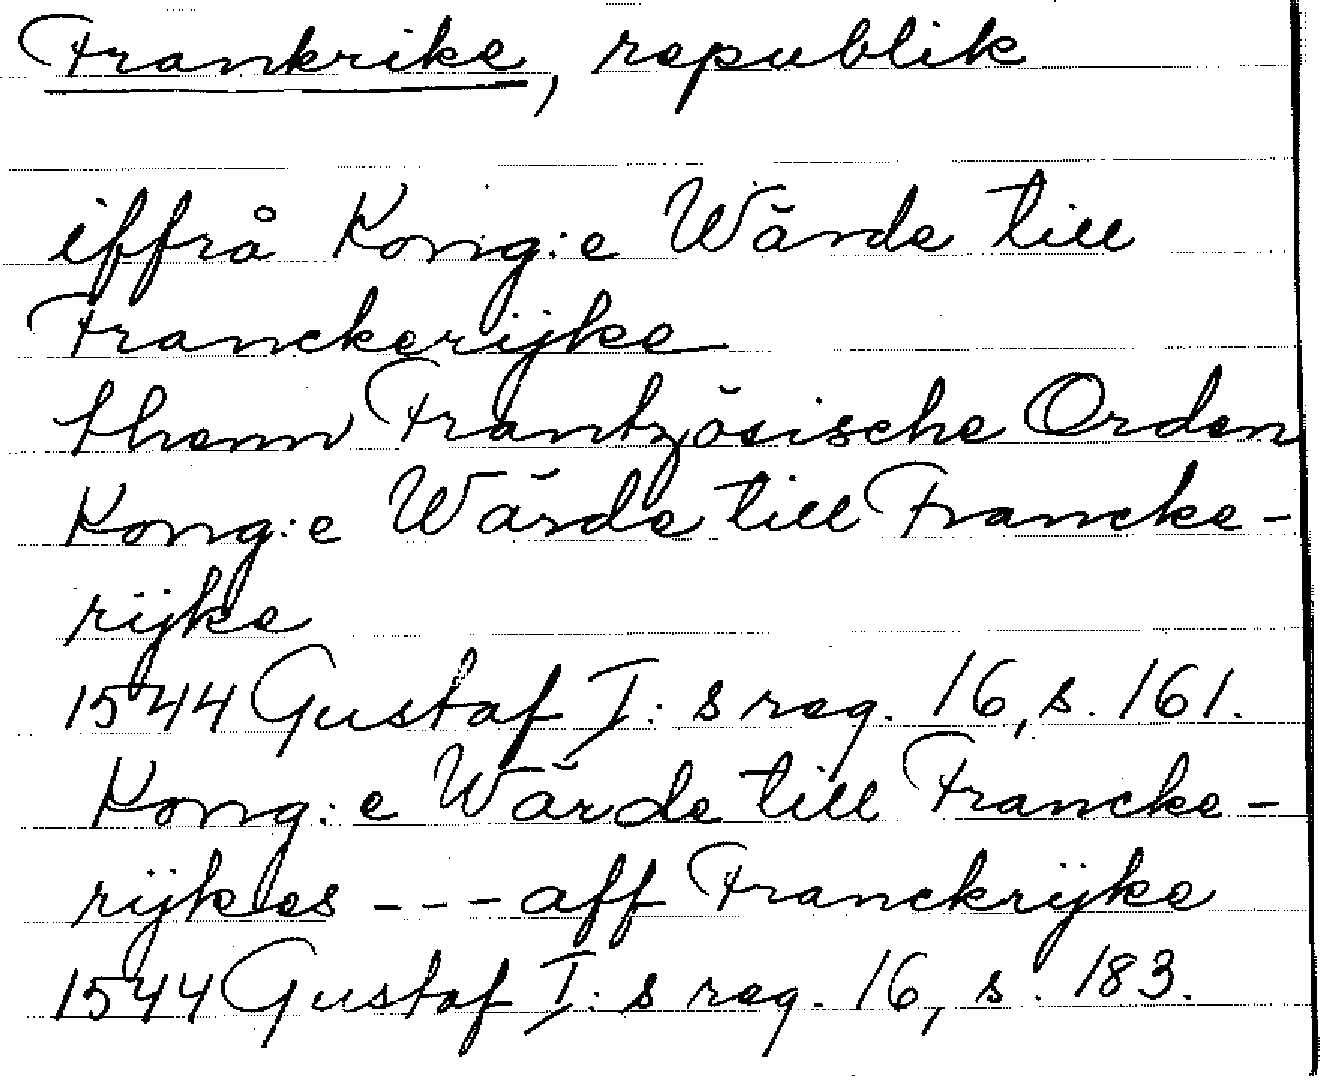 Frankrike, republik
iffrå Kong:e Wärde till
Franckerijke
thenn Frantzösische Orden
Kong:e Wärde till Francke-
rijke
1544 Gustaf I:s reg. 16, s. 161.
Kong:e Wärde till Francke-
rijkes --- aff Franckrijke
1544 Gustaf I:s reg. 16, s. 183.